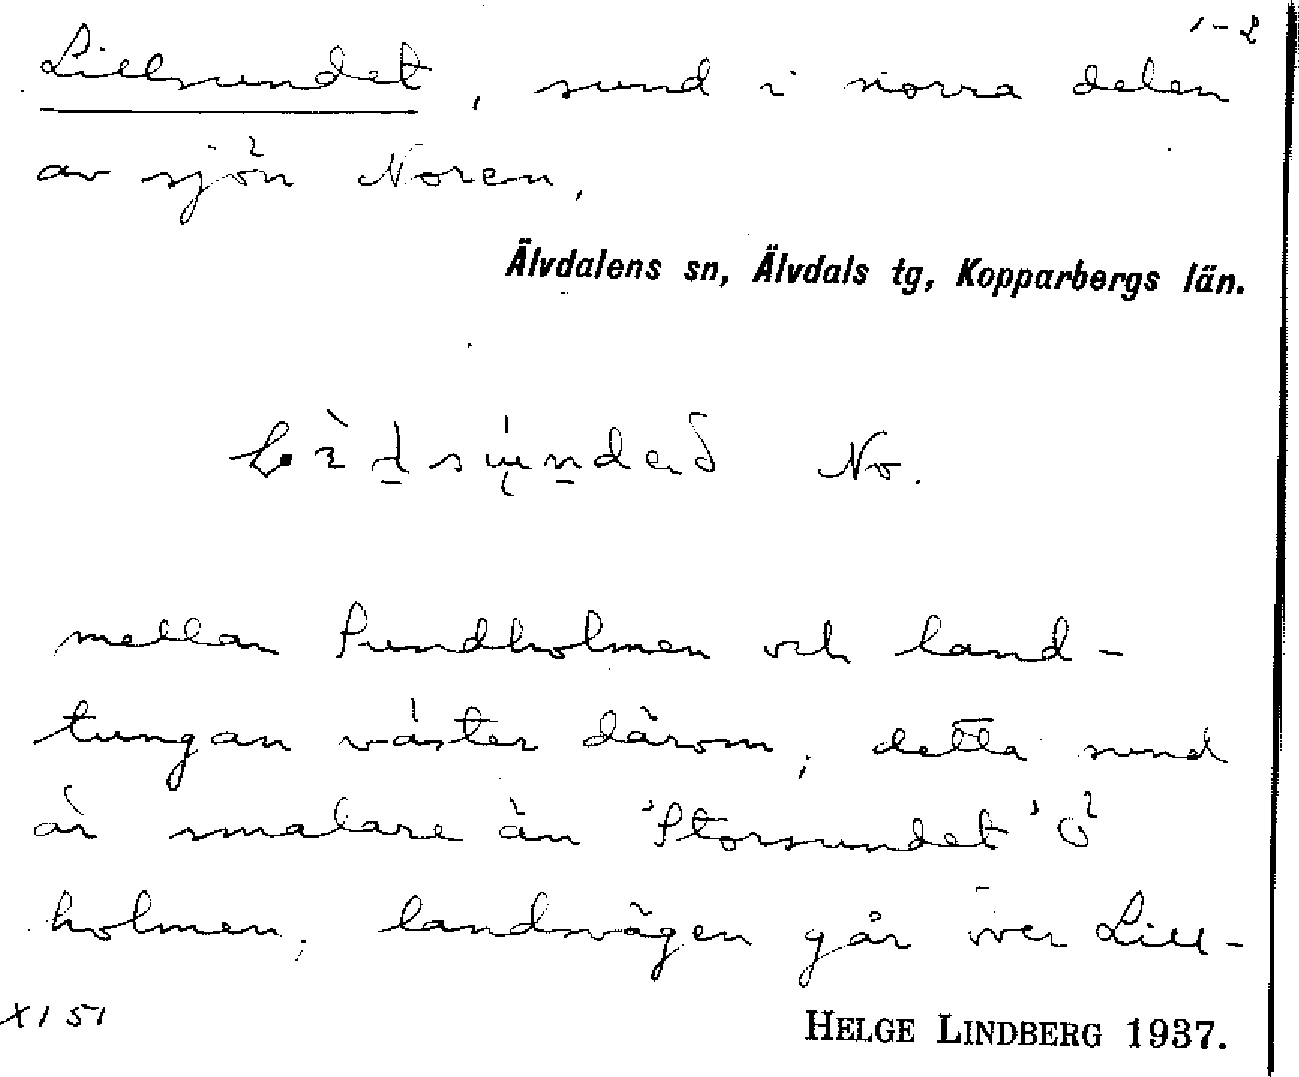 1-2
Lillsundet, sund i norra delen
av sjön Noren,
Älvdalens sn, Älvdals tg, Kopparbergs län.
No.
mellan Sundholmen och land-
tungan väster därom; detta sund
är smalare än 'Storsundet' Ö
holmen; landsvägen går över Lill-
XI 51
HELGE LINDBERG 1937.